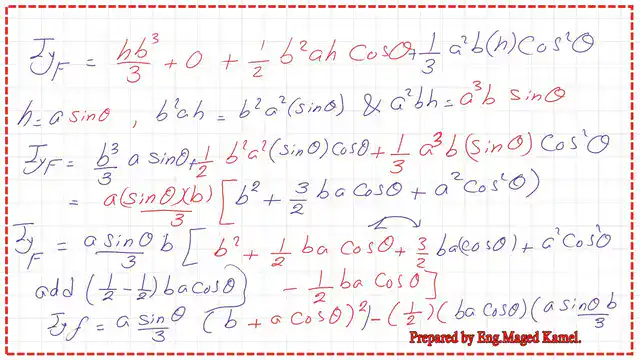 I_{y_F} = hb³/3 + 0 + 1/2 b²ah Cosθ + 1/3 a²b(h) Cos²θ
h = a sinθ , b²ah = b²a²(sinθ) & a²bh = a³b sinθ
I_{y_F} = b³/3 a sinθ + 1/2 b²a²(sinθ) cosθ + 1/3 a³b(sinθ) Cos²θ
= a(sinθ)(b)/3 [b² + 3/2 ba cosθ + a² cos²θ)
I_{y_F} = a sinθ b/3 [b² + 1/2 ba cosθ + 3/2 ba(cosθ) + a² cos²θ
add (1/2 - 1/2) ba cosθ) - 1/2 ba cosθ]
I_{y f} = a sinθ/3 (b + a cosθ)²) - (1/2)(ba cosθ)(a sinθ b/3
Prepared by Eng.Maged Kamel.